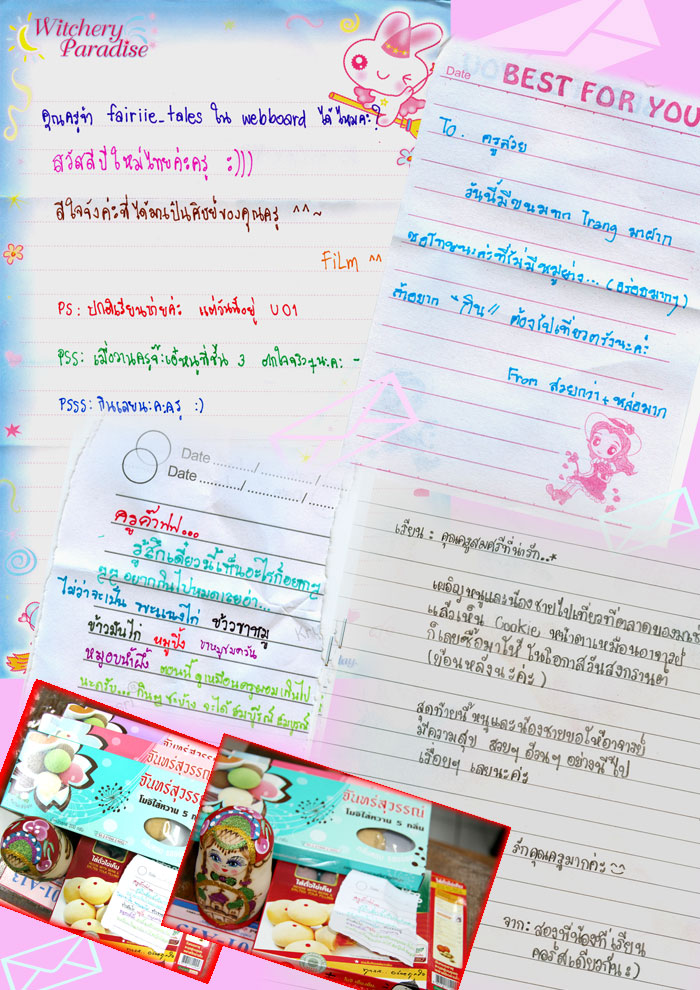 Witchery
Paradise
คุณครูจำ fairiie_tales ใน webboard ได้ไหมคะ?
สวัสดีปีใหม่ไทยค่ะครู :)))
ดีใจจังค่ะที่ได้มาเป็นศิษย์ของคุณครู ^^~
FiLm ^^
PS: ปกติเรียนบ่ายค่ะ แต่วันนี้อยู่ U01
PSS: เมื่อวานครูจ๊ะเอ๋หนูที่ชั้น 3 ตกใจจริงๆนะคะ -
PSSS: กินเลยนะคะครู :)
Date BEST FOR YOU
To. ครูสวย
วันนี้มีขนมจาก Trang มาฝาก
ขอโทษนะคะที่ไม่มีหมูย่าง... (อร่อยมากๆ)
ถ้าอยาก "กิน" ต้องไปเที่ยวตรังนะคะ
From สวยกว่า + หล่อมาก
Date ............/............/............
Date ............/............/............
ครูค๊าฟฟ...
รู้สึกเดี๋ยวนี้เห็นอะไรก็อยากๆ
อยากกินไปหมดเลยอ่ะ...
ไม่ว่าจะเป็น พะแนงไก่ ข้าวขาหมู
ข้าวมันไก่ หมูปิ้ง ขาหมูรมควัน
หมูอบน้ำผึ้ง ตอนนี้ดูเหมือนครูผอมเกินไป
นะครับ... กินๆซะบ้าง จะได้สมบูรณ์ สมบูรณ์
เรียน : คุณครูสมศรีที่น่ารัก..*
เผอิญหนูและน้องชายไปเที่ยวที่ตลาดของ
แล้วเห็น Cookie หน้าตาเหมือนอาจารย์
ก็เลยซื้อมาให้ ในโอกาสวันสงกรานต์
(ย้อนหลังนะค่ะ)
สุดท้ายนี้หนูและน้องชายขอให้อาจารย์
มีความสุข สวยๆ อ้วนๆ อย่างนี้ไป
เรื่อยๆ เลยนะค่ะ
รักคุณครูมากค่ะ
จาก: สองพี่น้องที่เรียน
คอร์สเดียวกัน :)
จันทร์สุวรรณ์
จันทร์สุวรรณ์
โมจิไส้หวาน 5 กลิ่น
ไส้ถั่วไข่เค็ม